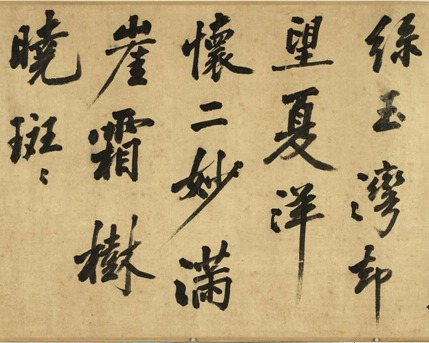 綠玉灣却
望夏洋
懷二妙滿
崖霜樹
曉斑〻